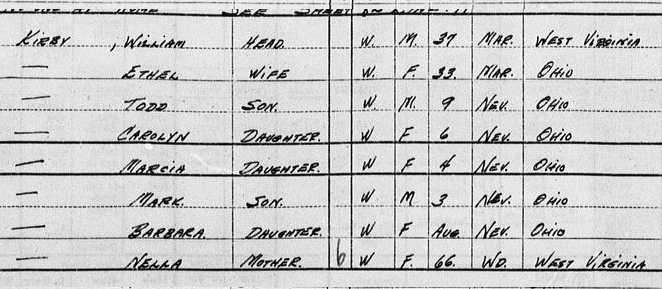 SEE SHEET
KIRBY , WILLIAM HEAD. W. M. 37 MAR. WEST VIRGINIA
— ETHEL WIFE W. F. 33. MAR. OHIO
— TODD SON. W. M. 9 NEV. OHIO
— CAROLYN DAUGHTER. W F 6 NEV. OHIO
— MARCIA DAUGHTER. W F 4 NEV. OHIO
— MARK. SON. W M 3 NEV. OHIO
— BARBARA. DAUGHTER. W F AUG. NEV. OHIO
— NELLA MOTHER. 6 W F. 66. WD. WEST VIRGINIA